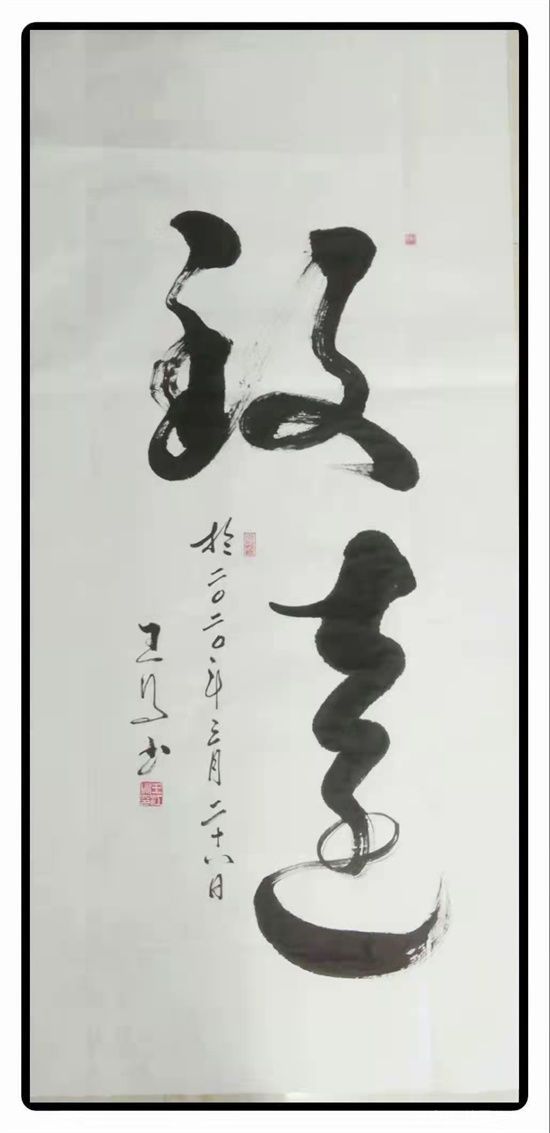 致遠
於二〇二〇年三月二十八日
王 书